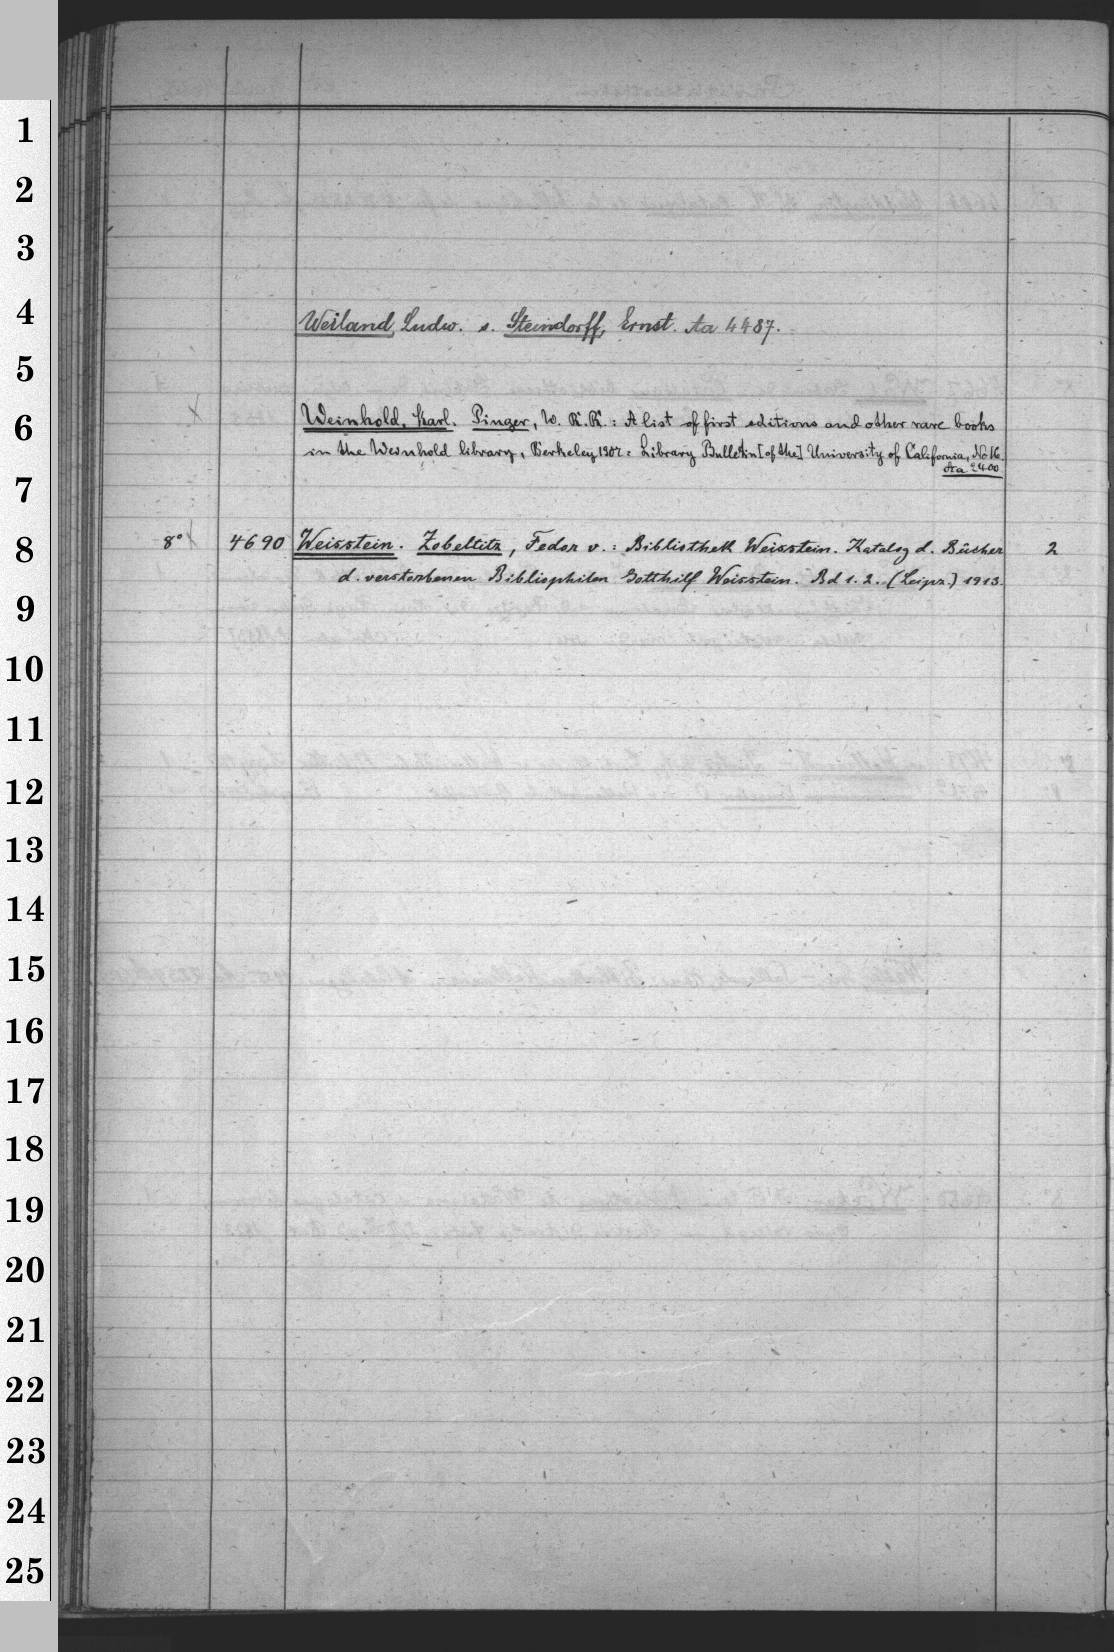 1
2
3
4
Weiland, Ludw. s. Steindorff, Ernst. Aa 4487.
5
6
Weinhold, Karl. Pinger, W. R. R.: A list of first editions and other rare books
in the Weinhold library, Berkeley 1907 = Library Bulletin [of the] University of California, No 16
Aa 2400
7
8
8° 4690 Weisstein. Zobeltitz, Fedor v.: Bibliothek Weisstein. Katalog d. Bücher 2
d. verstorbenen Bibliophilen Gotthilf Weisstein. Bd 1. 2. (Leipz.) 1913.
9
10
11
12
13
14
15
16
17
18
19
20
21
22
23
24
25